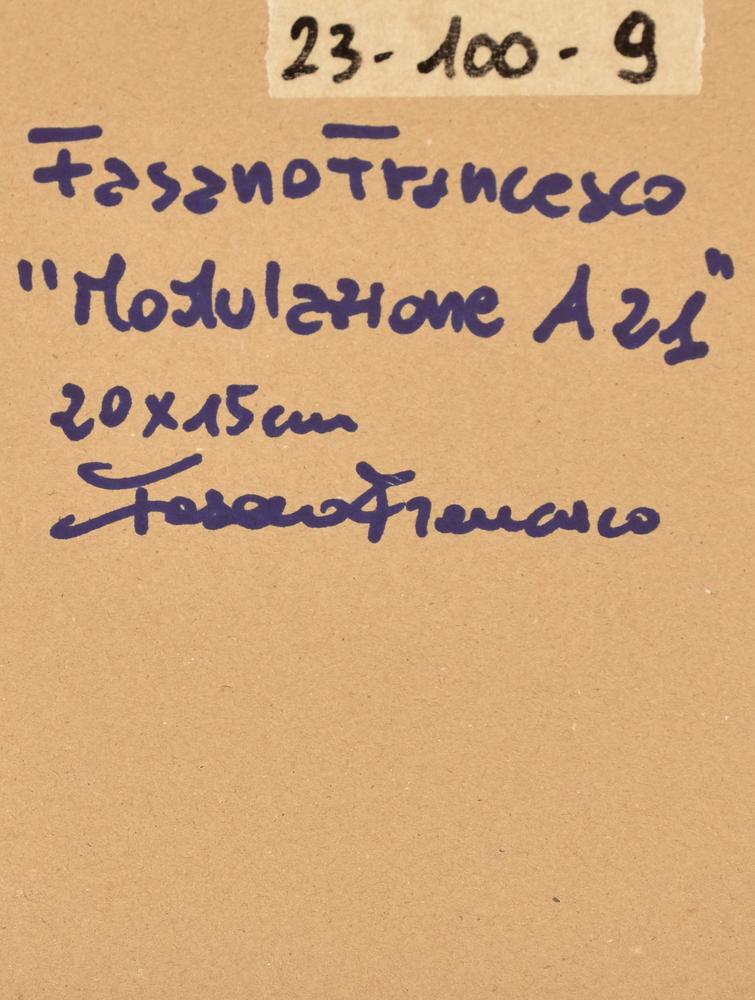 23-100-9
Fasano Francesco
"Modulazione A21"
20x15cm
Fasano Francesco